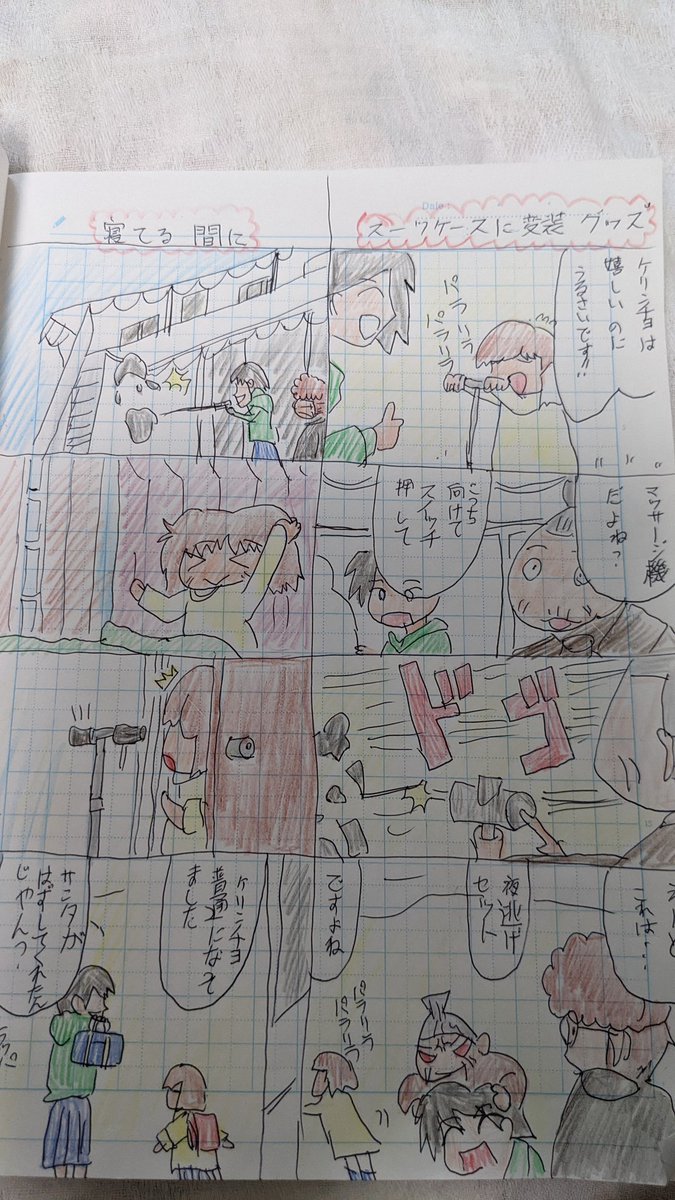 スーツケースに変装 グッズ
ケリンチョは
嬉しいのに
うるさいです!!
パラリラ
パラリラ
マッサージ機
だよね？
こっち
向けて
スイッチ
押して
ドゴ
これは・・
夜逃げ
セット
ですよね
パラリラ
パラリラ
寝てる 間に
ケリンチョ
普通になって
ました
サンタが
はずしてくれたん
じゃん？